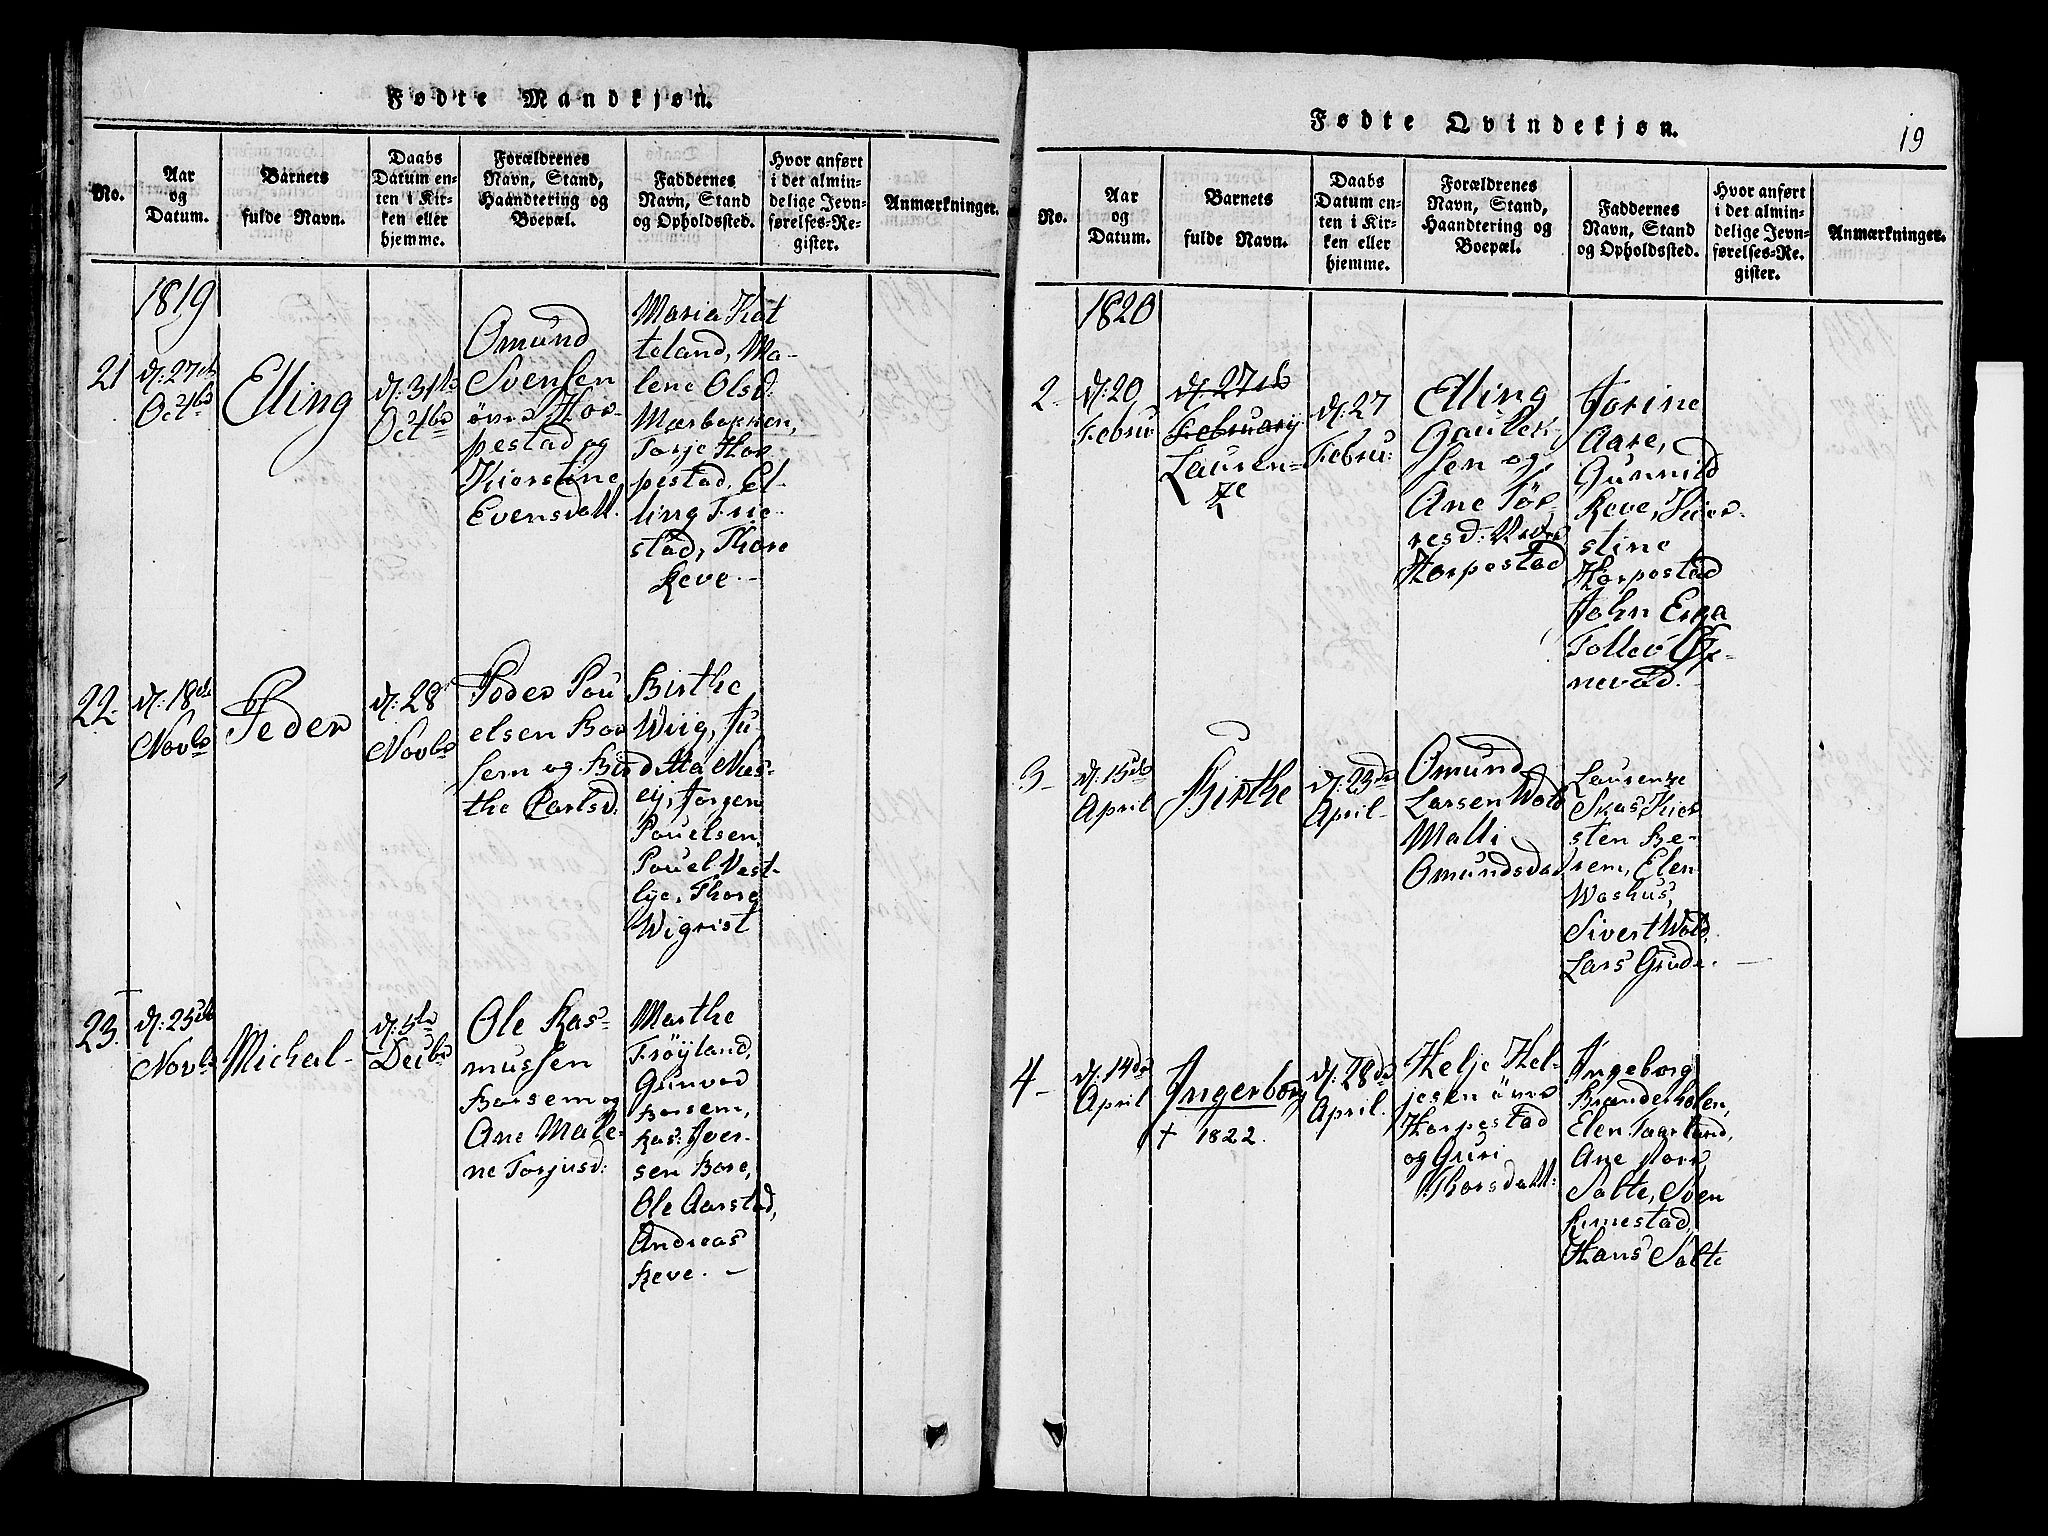 Fødte Mandkjøn.
No.
Aar
og
Datum.
Barnets
fulde Navn.
Daabs
Datum en-
ten i Kir-
ken eller
hjemme.
Forældrenes
Navn, Stand,
Haandtering og
Boepæl.
Faddernes
Navn, Stand
og Opholdssted.
Hvor anført
i det almin-
delige Jevn-
førelses-Re-
gister.
Anmærkninger.
1819
21
d: 27de
Octbr
Elling
d: 31te
Octbr
Omund
Svensen
övre Hor-
pestad og
Kierstine
Evensdatt.
Maria Kat
teland, Ma-
lene Olsd:
Mærbakken,
Torje Hor
pestad, El-
ling Tue
stad, Thore
Reve. -
22-
d: 18de
Novbr
Peder
d: 28
Novbr
Peder Pou
elsen Bor
sem og Bir
the Carlsd:
Birthe
Wiig, Ju
ditta Nes-
ej, Jørgen
Pouelsen,
Pouel Vest-
lye, Thore
Wigrist
23.
d: 25de
Novbr
Michal-
d: 5te
Decbr
Ole Ras-
mussen
Borsem og
Ane Male-
ne Torjusd:
Marthe
Frøyland,
Gunvor
Borsem,
Ras: Iver-
sen Bore,
Ole Aarstad,
Andreas
Reve. -
Fødte Qvindekjøn.
19
No.
Aar
og
Datum.
Barnets
fulde Navn.
Daabs
Datum en-
ten i Kir-
ken eller
hjemme.
Forældrenes
Navn, Stand,
Haandtering og
Boepæl.
Faddernes
Navn, Stand
og Opholdssted.
Hvor anført
i det almin-
delige Jevn-
førelses-Re-
gister.
Anmærkninger.
1820
2-
d: 20
Febru
d: 27de
February
Lauren-
ze
d: 27
Febru:
Elling
Gautek-
sen og
Ane Tör-
resd: Nedre
Horpestad
Jorine
Aare,
Gunnild
Reve, Kier-
stine
Horpestad
John Erga
Tollev
nevad.-
3-
d: 15de
April
Birthe
d: 23de
April-
Omund
Larsen Wold
Malli
Omundsdad
Laurenze
Skas, Kier
sten Bo-
rem, Elen
Washus,
Sivert Wold,
Lars Grude. -
4-
d: 14de
April
Ingerborg
+ 1822.
d: 28de
April.
Helje Hel-
jesen övre
Horpestad
og Guri
Thorsdatt:
Ingeborg
Brandsholen,
Elen Taarland,
Ane Nore
Salte, Sven
Rimestad,
Hans Salte